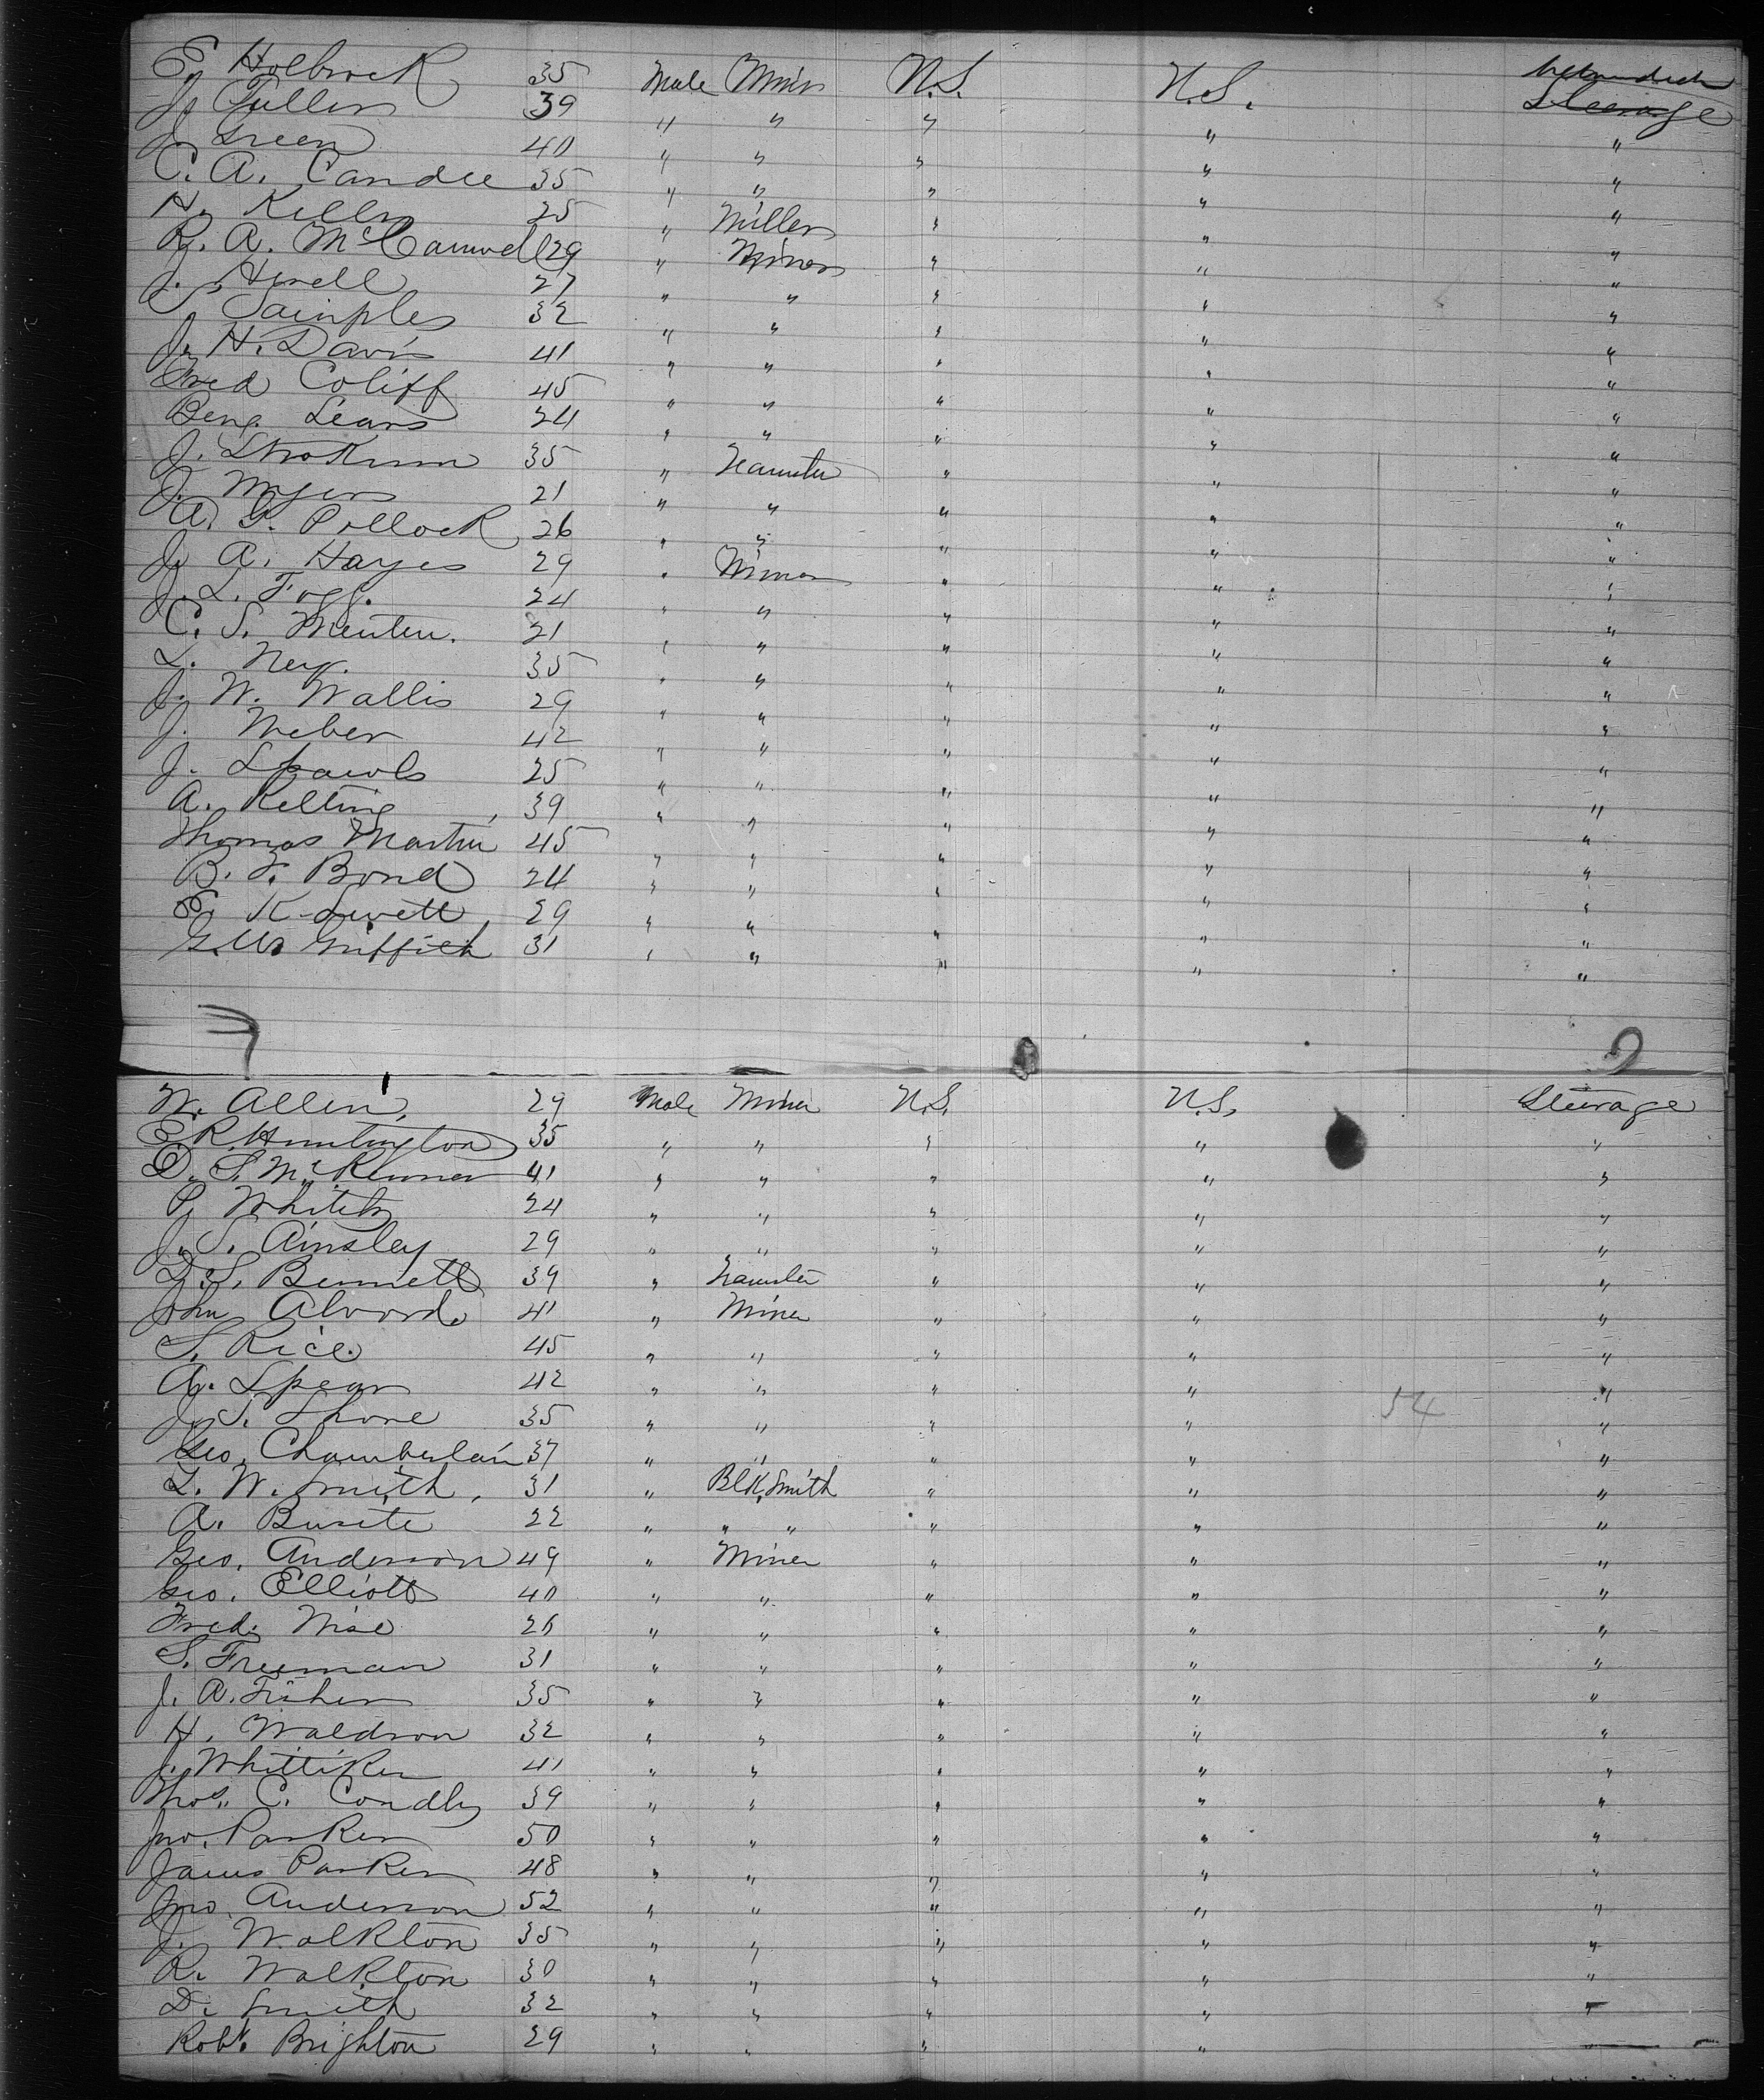 E. Holbrook 35 Male Miner U.S. U.S. between deck Steerage
J. Fuller 39 " " " " "
J. Green 40 " " " " "
C. A. Candee 35 " " " " "
H. Kelly 25 " Miller " " "
R. A. McCamwell 29 " Miner " " "
J. Hewell 27 " " " " "
Saimples 32 " " " " "
J. H. Davis 41 " " " " "
Fred Coliff 45 " " " " "
Benj. Lears 24 " " " " "
J. 35 " Teamster " " "
J. Myers 21 " " " " "
A. P. Pollock 26 " " " " "
J. A. Hayes 29 " Miner " " "
J. L. Fogg. 24 " " " " "
C. S. Menten. 21 " " " " "
L. Ney. 35 " " " " "
J. W. Wallis 29 " " " " "
J. Weber 42 " " " " "
J. Spawls 25 " " " " "
A. Kelting 39 " " " " "
Thomas Martin 45 " " " " "
B. F. Bond 24 " " " " "
E. K. Lovett 29 " " " " "
G. W. Griffith 31 " " " " "
W. Allen, 29 Male Miner U.S. U.S. Steerage
E R Huntington 35 " " " " "
D. S. McKenner 41 " " " " "
P. White 24 " " " " "
J. S. Ainsley 29 " " " " "
D. S. Bennett 39 " Teamster " " "
John Alvord. 41 " Miner " " "
S. Rice. 45 " " " " "
A. Spear 42 " " " " "
J. S. Shore 35 " " " " "
54
Geo. Chamberlain 37 " " " " "
L. W. Smith, 31 " Blk. Smith " " "
A. Busite 22 " " " " " "
Geo. Anderson 49 " Miner " " "
Geo. Elliott 40 " " " " "
Fred. Wise 26 " " " " "
S. Freeman 31 " " " " "
J. A. Fisher 35 " " " " "
H. Waldron 32 " " " " "
J. Whittiker 41 " " " " "
Thos. C. Condly 39 " " " " "
Jno. Parker 50 " " " " "
James Parker 48 " " " " "
Jno. Anderson 52 " " " " "
J. Walkton 35 " " " " "
R. Walkton 30 " " " " "
D. Smith 32 " " " " "
Robt. Brighton 29 " " " " "